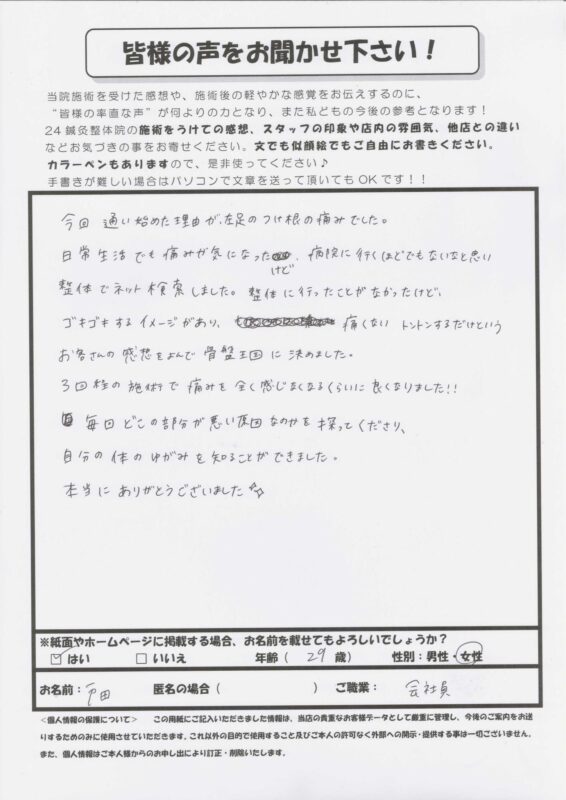 皆様の声をお聞かせ下さい！
当院施術を受けた感想や、施術後の軽やかな感覚をお伝えするのに、
“皆様の率直な声”が何よりの力となり、また私どもの今後の参考となります！
24鍼灸整体院の施術をうけての感想、スタッフの印象や店内の雰囲気、他店との違い
などお気づきの事をお寄せください。文でも似顔絵でもご自由にお書きください。
カラーペンもありますので、是非使ってください♪
手書きが難しい場合はパソコンで文章を送って頂いてもOKです！！
今回 通い始めた理由が、左足のつけ根の痛みでした。
日常生活でも痛みが気になったけど、病院に行くほどでもないなと思い
整体でネット検索しました。整体に行ったことがなかったけど、
ゴキゴキするイメージがあり、痛くない トントンするだけという
お客さんの感想をよんで骨盤王国に決めました。
3回程の施術で痛みを全く感じなくなるくらいに良くなりました!!
毎回どこの部分が悪い原因なのかを探ってくださり、
自分の体のゆがみを知ることができました。
本当にありがとうございました☆
※紙面やホームページに掲載する場合、お名前を載せてもよろしいでしょうか？
☑はい □いいえ 年齢（ 29 歳） 性別：男性・女性
お名前：戸田 匿名の場合（ ） ご職業： 会社員
＜個人情報の保護について＞ この用紙にご記入いただきました情報は、当店の貴重なお客様データとして厳重に管理し、今後のご案内をお送
りするためのみに使用させていただきます。これ以外の目的で使用すること及びご本人の許可なく外部への開示・提供する事は一切ございません。
また、個人情報はご本人様からのお申し出により訂正・削除いたします。